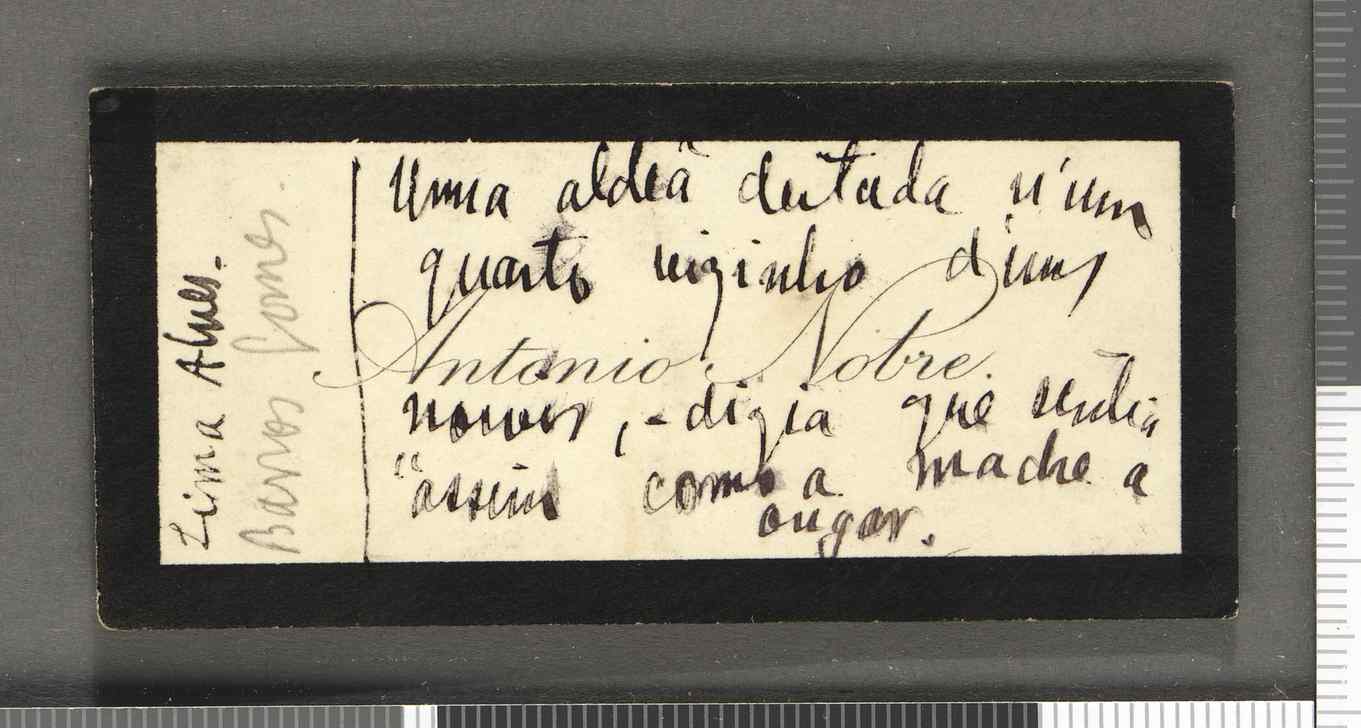 Lima Alves.
Barros Gomes.
Uma aldeã deitada n'um
quarto vizinho d'uns
Antonio Nobre.
noivos, - dizia que sentia
"assim como a madre a
ougar.